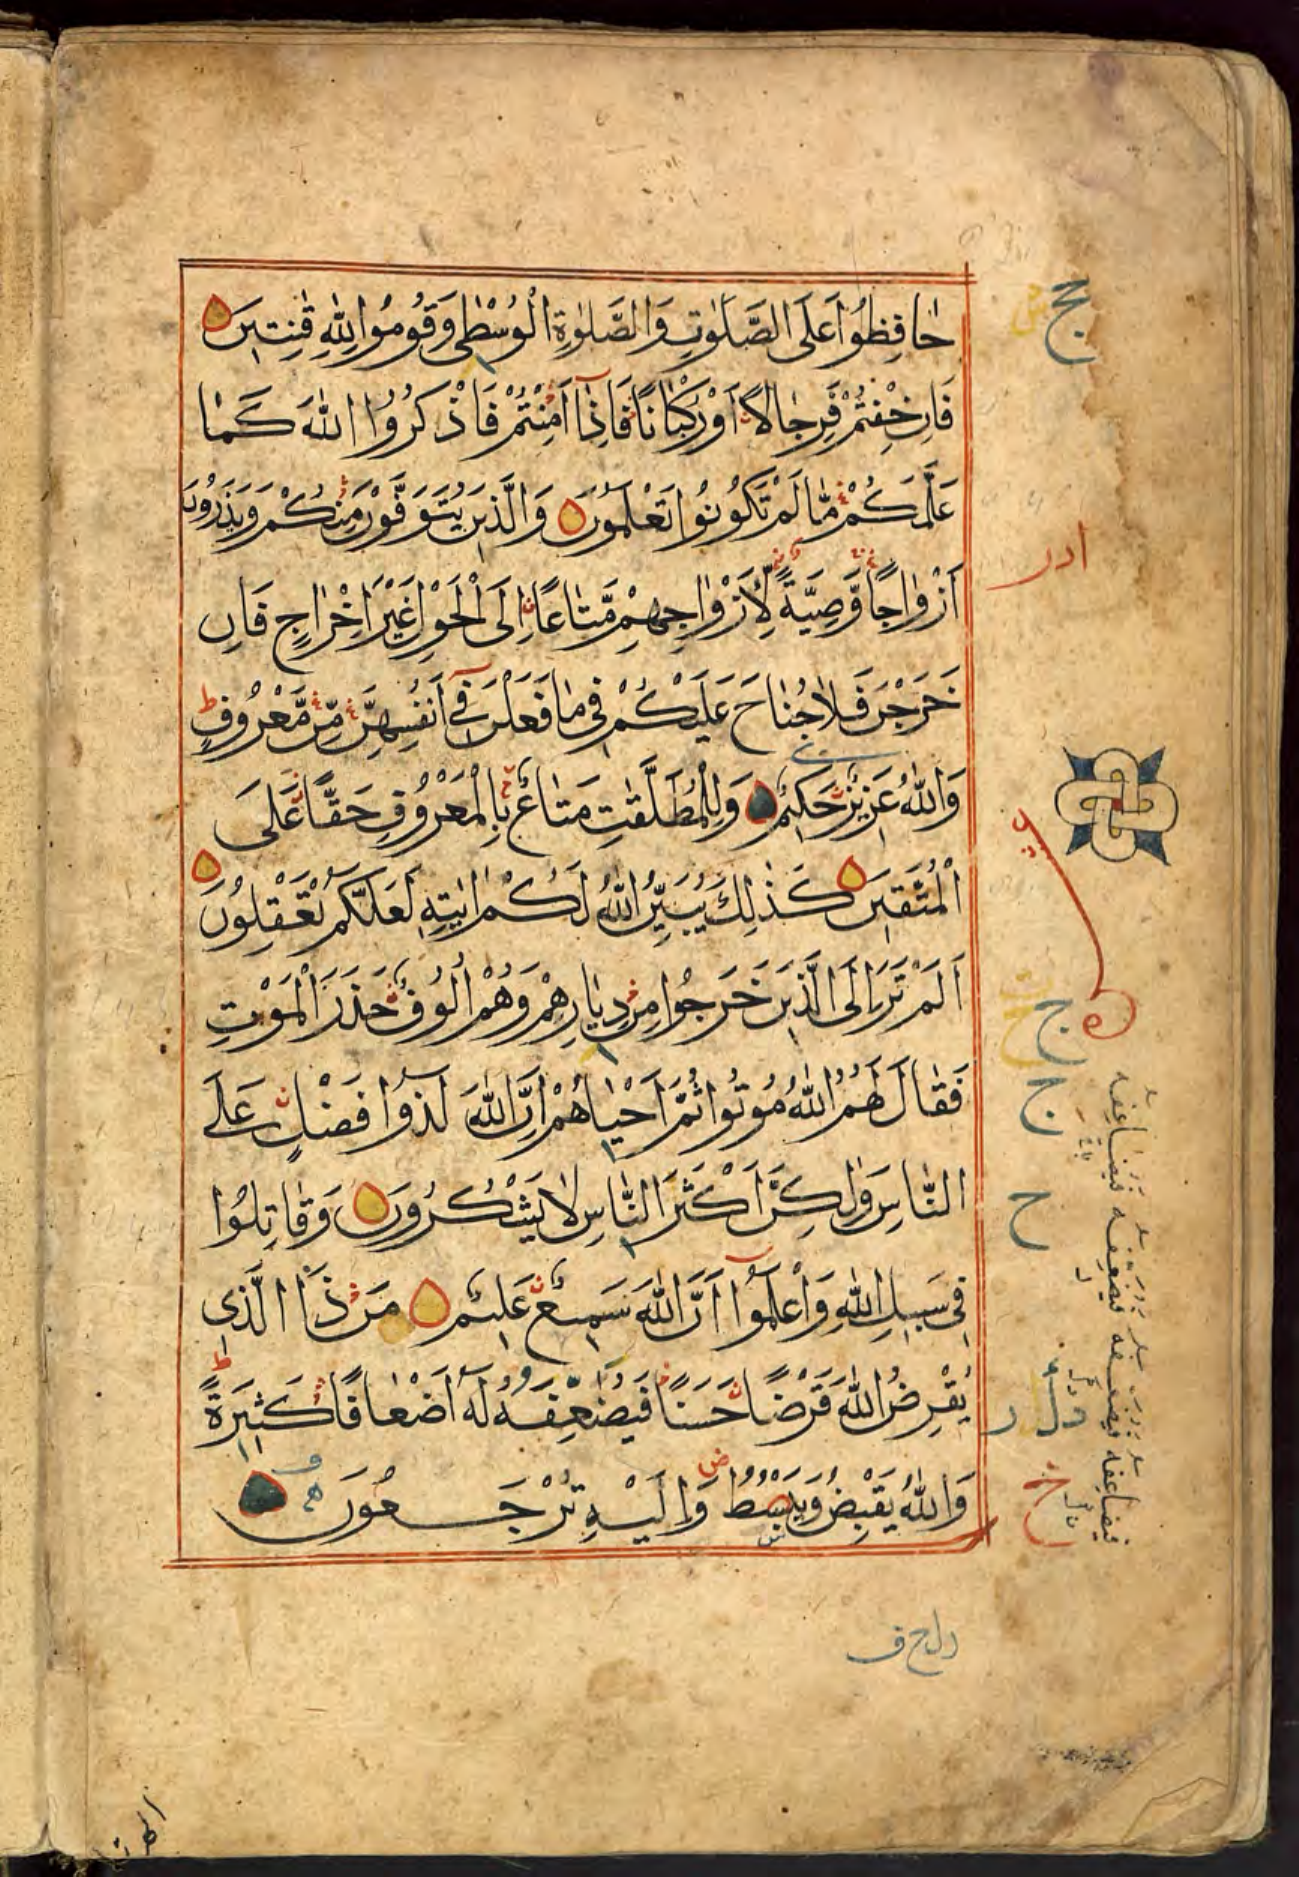 حَافِظُوا عَلَى الصَّلَوٰتِ وَالصَّلَوٰةِ الْوُسْطٰى وَقُومُوا لِلّٰهِ قٰنِتِينَ
فَاِنْ خِفْتُمْ فَرِجَالًا اَوْ رُكْبَانًا فَاِذَا اَمِنْتُمْ فَاذْكُرُوا اللّٰهَ كَمَا
عَلَّمَكُمْ مَّا لَمْ تَكُونُوا تَعْلَمُونَ وَالَّذِينَ يُتَوَفَّوْنَ مِنْكُمْ وَيَذَرُونَ
اَزْوَاجًا وَّصِيَّةً لِّاَزْوَاجِهِمْ مَّتَاعًا اِلَى الْحَوْلِ غَيْرَ اِخْرَاجٍ فَاِنْ
خَرَجْنَ فَلَا جُنَاحَ عَلَيْكُمْ فِي مَا فَعَلْنَ فِي اَنْفُسِهِنَّ مِنْ مَّعْرُوفٍ ط
وَاللّٰهُ عَزِيزٌ حَكِيمٌ وَلِلْمُطَلَّقٰتِ مَتَاعٌ بِالْمَعْرُوفِ حَقًّا عَلَى
الْمُتَّقِينَ كَذٰلِكَ يُبَيِّنُ اللّٰهُ لَكُمْ اٰيٰتِهِ لَعَلَّكُمْ تَعْقِلُونَ
اَلَمْ تَرَ اِلَى الَّذِينَ خَرَجُوا مِنْ دِيَارِهِمْ وَهُمْ اُلُوفٌ حَذَرَ الْمَوْتِ
فَقَالَ لَهُمُ اللّٰهُ مُوتُوا ثُمَّ اَحْيَاهُمْ اِنَّ اللّٰهَ لَذُوا فَضْلٍ عَلَى
النَّاسِ وَلٰكِنَّ اَكْثَرَ النَّاسِ لَا يَشْكُرُونَ وَقَاتِلُوا
فِي سَبِيلِ اللّٰهِ وَاعْلَمُوا اَنَّ اللّٰهَ سَمِيعٌ عَلِيمٌ مَنْ ذَا الَّذِي
يُقْرِضُ اللّٰهَ قَرْضًا حَسَنًا فَيُضٰعِفَهُ لَهُ اَضْعَافًا كَثِيرَةً ط
وَاللّٰهُ يَقْبِضُ وَيَبْصُطُ وَاِلَيْهِ تُرْجَعُونَ
ج
ج
ح
فيضاعفه فيضعفه فيضعفه فيضاعفه